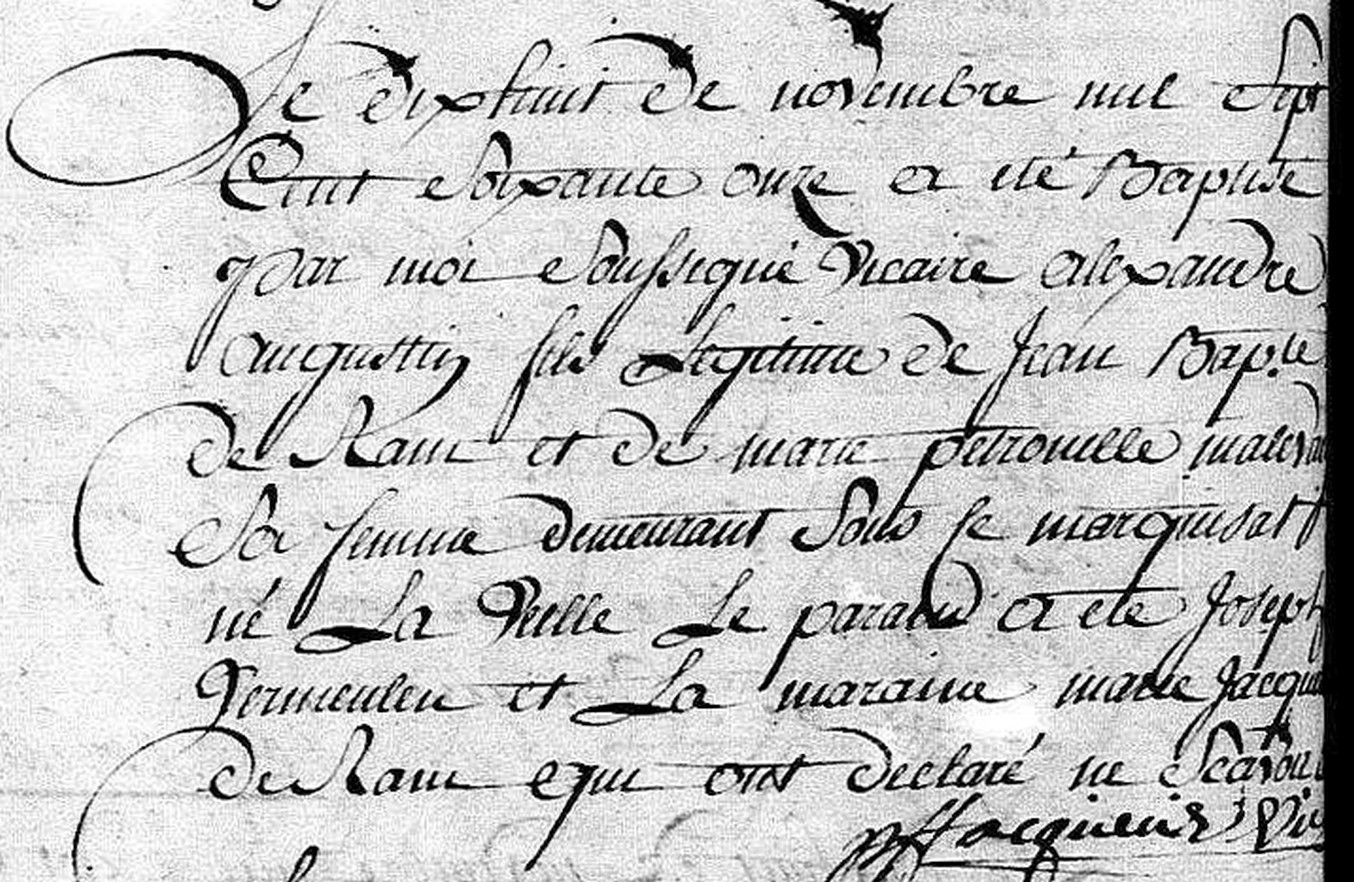 Le dixhuit de novembre mil sept
Cent Soixante onze a eté Baptisé
par moi Soussigné Vicaire alexandre
augustin fils Legitime de Jean Bap.te
de Raux et de marie petronille
Sa femme demeurant Sous le marquisat
né La Veille Le parain a ete Joseph
Vermeulen et La maraine marie
de Raux qui ont declaré ne Scavoir